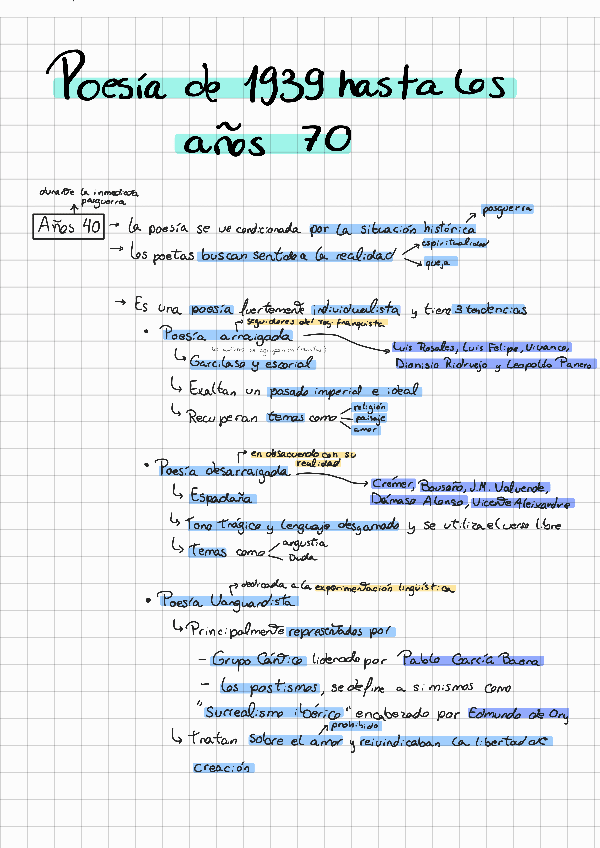 Poesía de 1939 hasta los
años 70
durante la inmediata
posguerra
Años 40 → la poesía se ve condicionada por la situación histórica
posguerra
→ los poetas buscan sentido a la realidad
espiritualidad
queja
→ Es una poesía fuertemente individualista y tiene 3 tendencias
seguidores del reg. franquista
• Poesía arraigada
Luis Rosales, Luis Felipe, Vivanco,
Dionisio Ridruejo y Leopoldo Panero
↳ Garcilaso y escorial
↳ Exaltan un pasado imperial e ideal
↳ Recuperan temas como
religión
paisaje
amor
en desacuerdo con su
realidad
• Poesía desarraigada
Crémer, Bousoño, J.M. Valverde,
Dámaso Alonso, Vicente Aleixandre
↳ Espadaña
↳ Tono trágico y lenguaje desgarrado y se utiliza el verso libre
↳ Temas como
angustia
Duda
dedicada a la experimentación lingüística
• Poesía Vanguardista
↳ Principalmente representados por
- Grupo Cántico liderado por Pablo García Baena
- los postismos, se define a si mismos como
"Surrealismo ibérico" encabezado por Edmundo de Ory
prohibido
↳ Tratan sobre el amor y reivindicaban la libertad de
creación